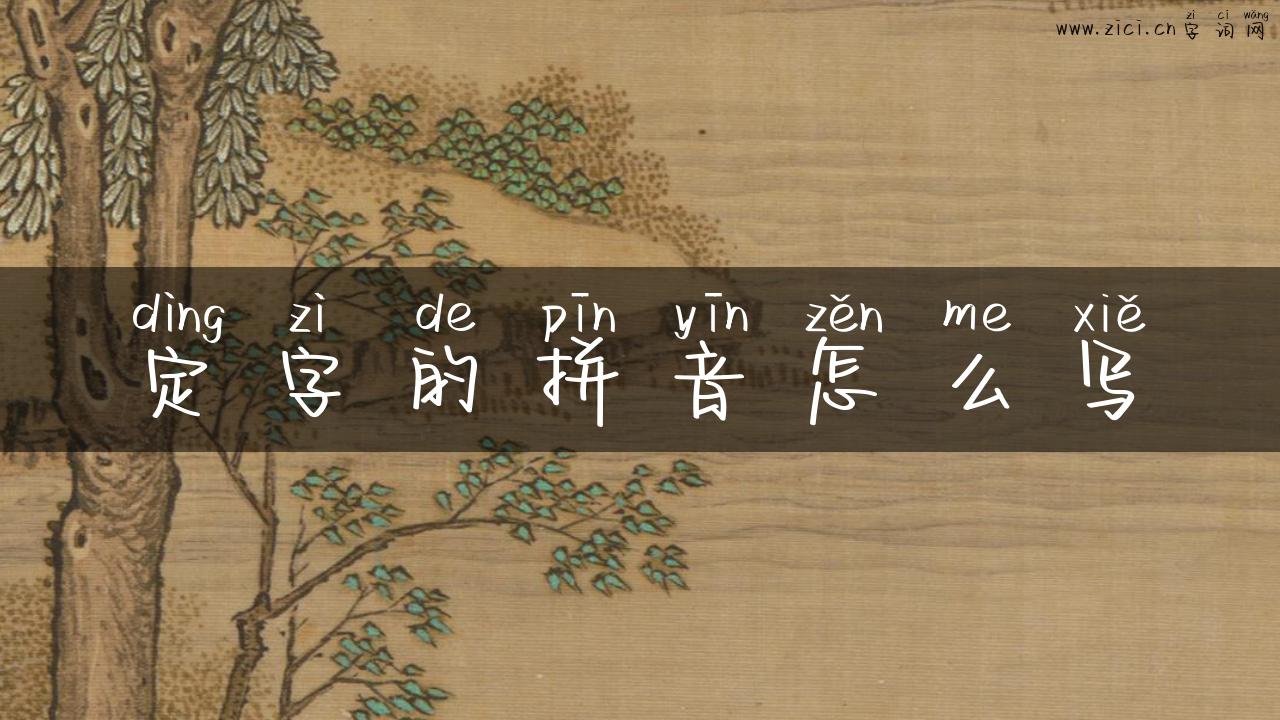 zì cí wǎng
www.zici.cn 字词网
dìng zì de pīn yīn zěn me xiě
定字的拼音怎么写